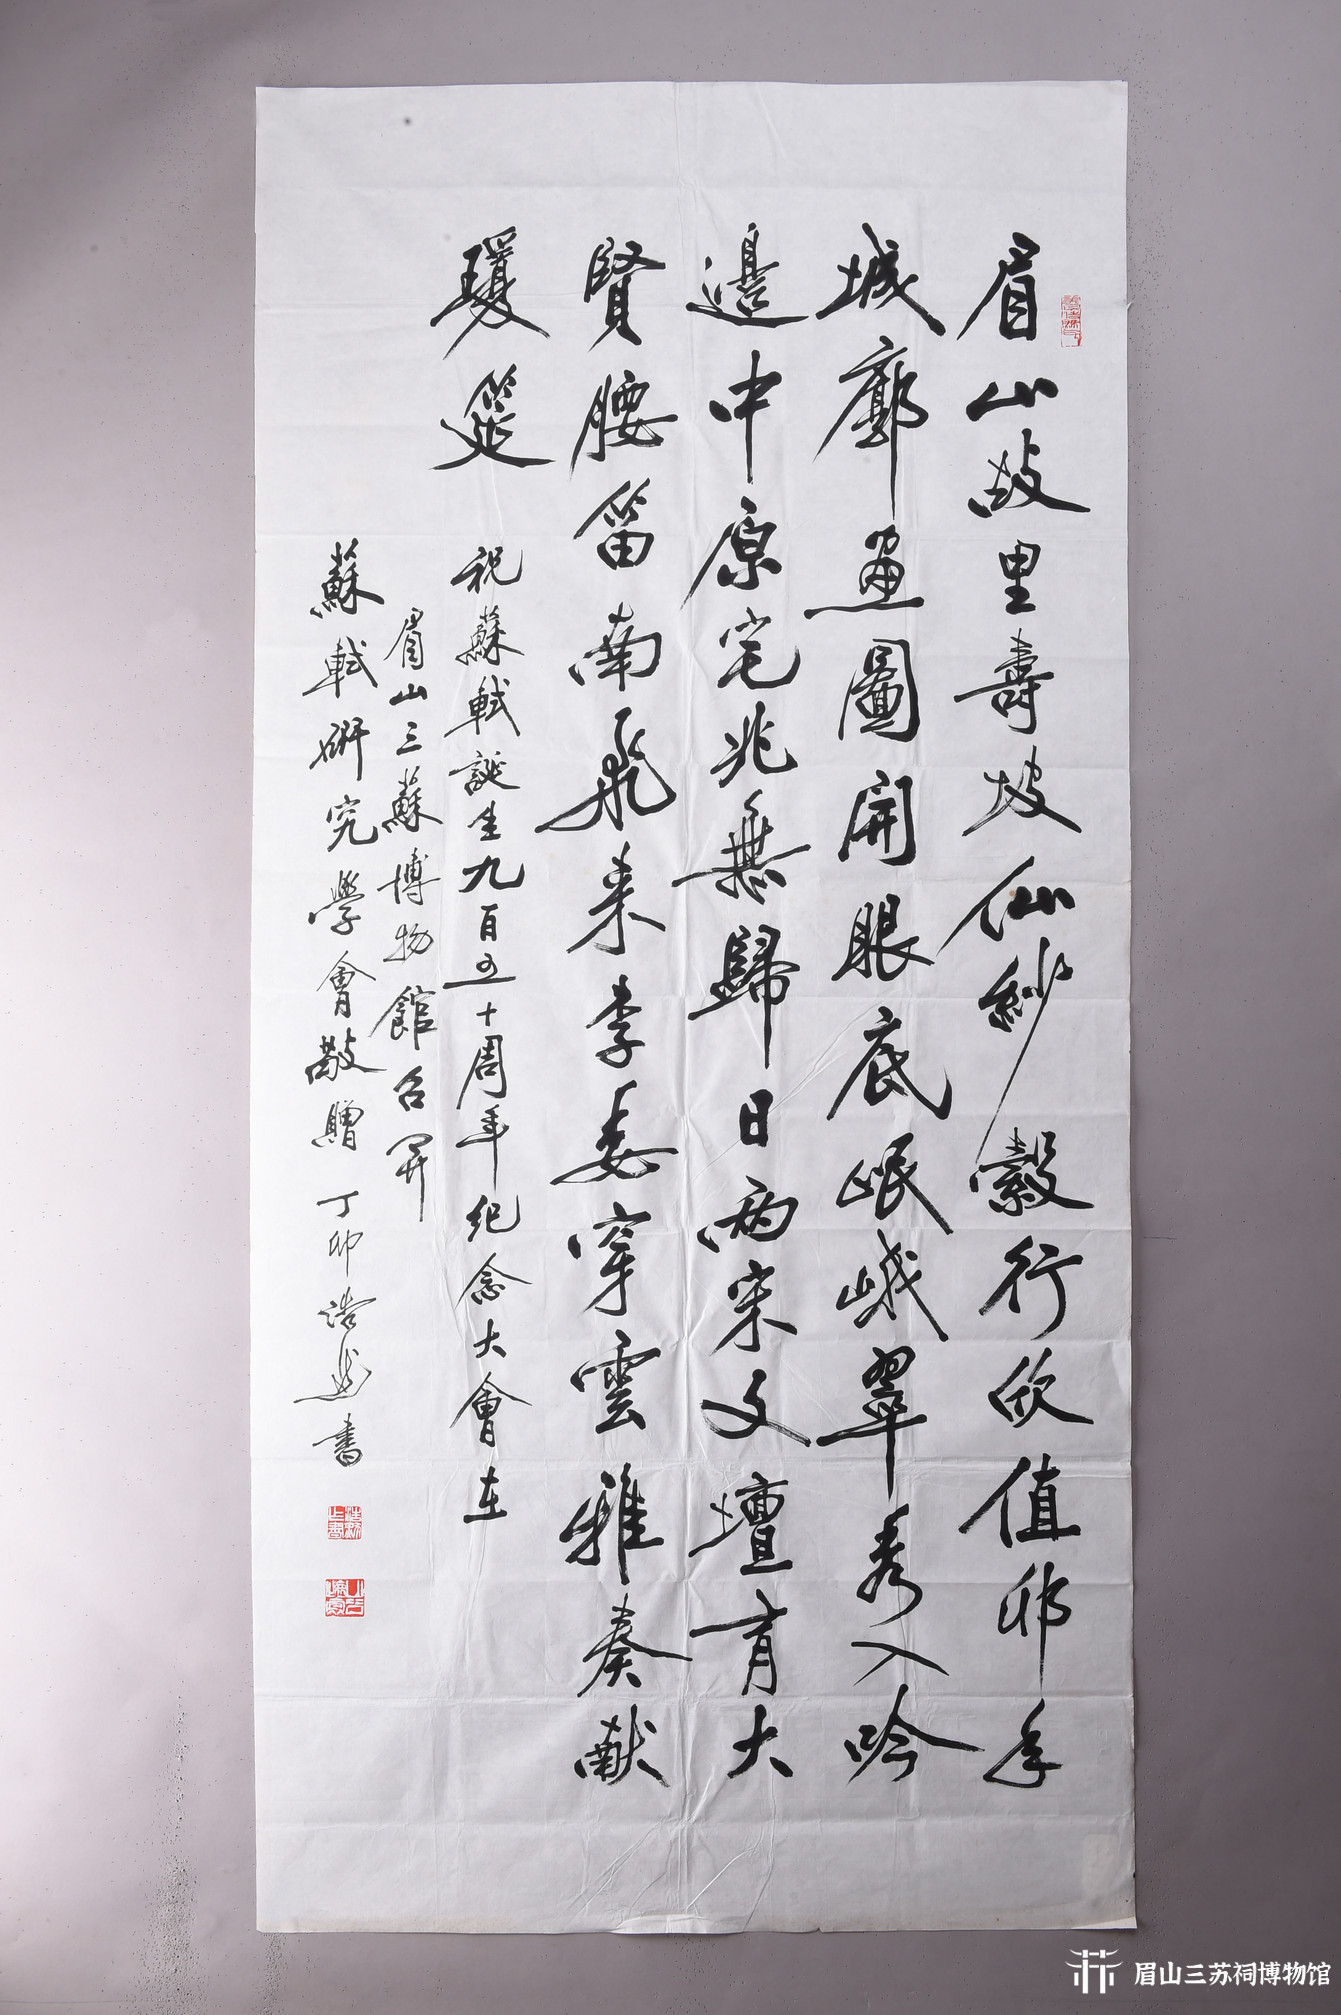 眉山故里壽坡仙紗縠行欣值邠年
城廓畫圖開眼底岷峨翠秀入吟
邊中原宅兆無歸日兩宋文壇育大
賢腰笛南飛來李委穿雲雅奏献
瓊筵
祝蘇軾誕生九百五十周年紀念大會在
眉山三蘇博物館召开
蘇軾研究學會敬贈 丁卯浩然書
眉山三苏祠博物馆